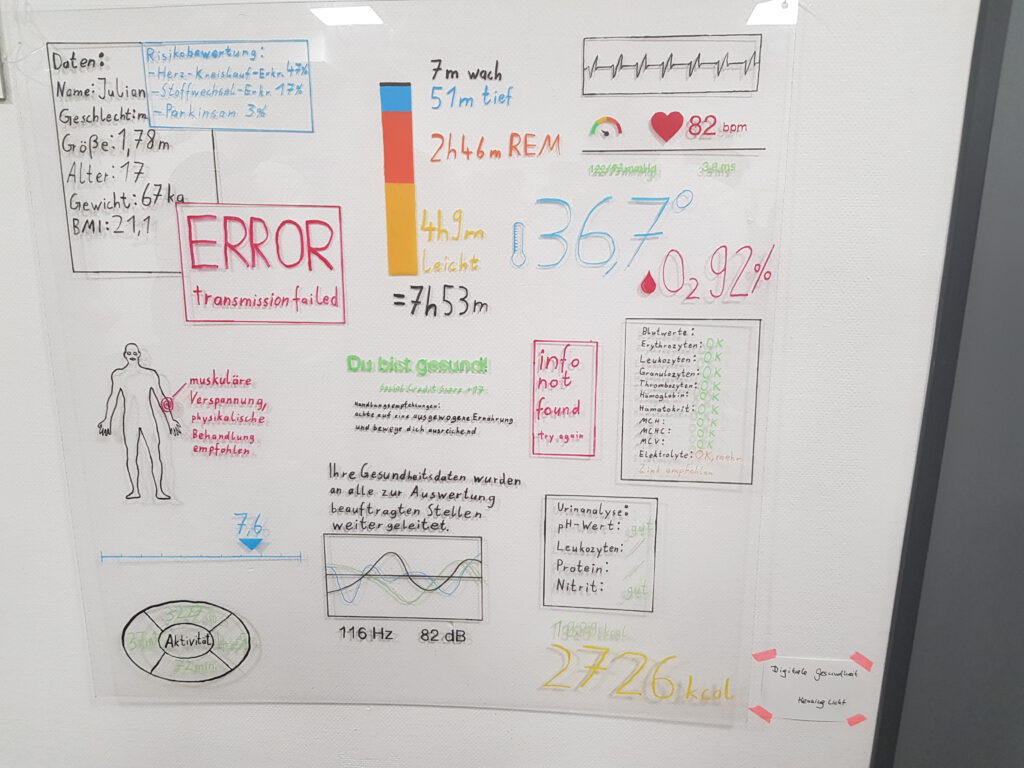 Daten:
Name: Julian
Geschlecht: m
Größe: 1,78m
Alter: 17
Gewicht: 67 kg
BMI: 21,1
Risikobewertung:
- Herz-Kreislauf-Erkr. 47%
- Stoffwechsel-Erkr. 17%
- Parkinson 3%
ERROR
transmission failed
7m wach
51m tief
2h46m REM
4h9m
Leicht
=7h53m
82 bpm
36,7°
O2 92%
muskuläre
Verspannung,
physikalische
Behandlung
empfohlen
Du bist gesund!
Social Credit Score +17
Handlungsempfehlungen:
achte auf eine ausgewogene Ernährung
und bewege dich ausreichend
info
not
found
try again
Blutwerte:
Erythrozyten: OK
Leukozyten: OK
Granulozyten: OK
Thrombozyten: OK
Hämoglobin: OK
Hämatokrit: OK
MCH: OK
MCHC: OK
MCV: OK
Elektrolyte: OK, mehr
Zink empfohlen
Ihre Gesundheitsdaten wurden
an alle zur Auswertung
beauftragten Stellen
weitergeleitet.
116 Hz 82 dB
Urinanalyse:
pH-Wert: gut
Leukozyten:
Protein:
Nitrit: gut
7,6
Aktivität
72 min.
2726 kcal
Digitale Gesundheit
Henning Licht